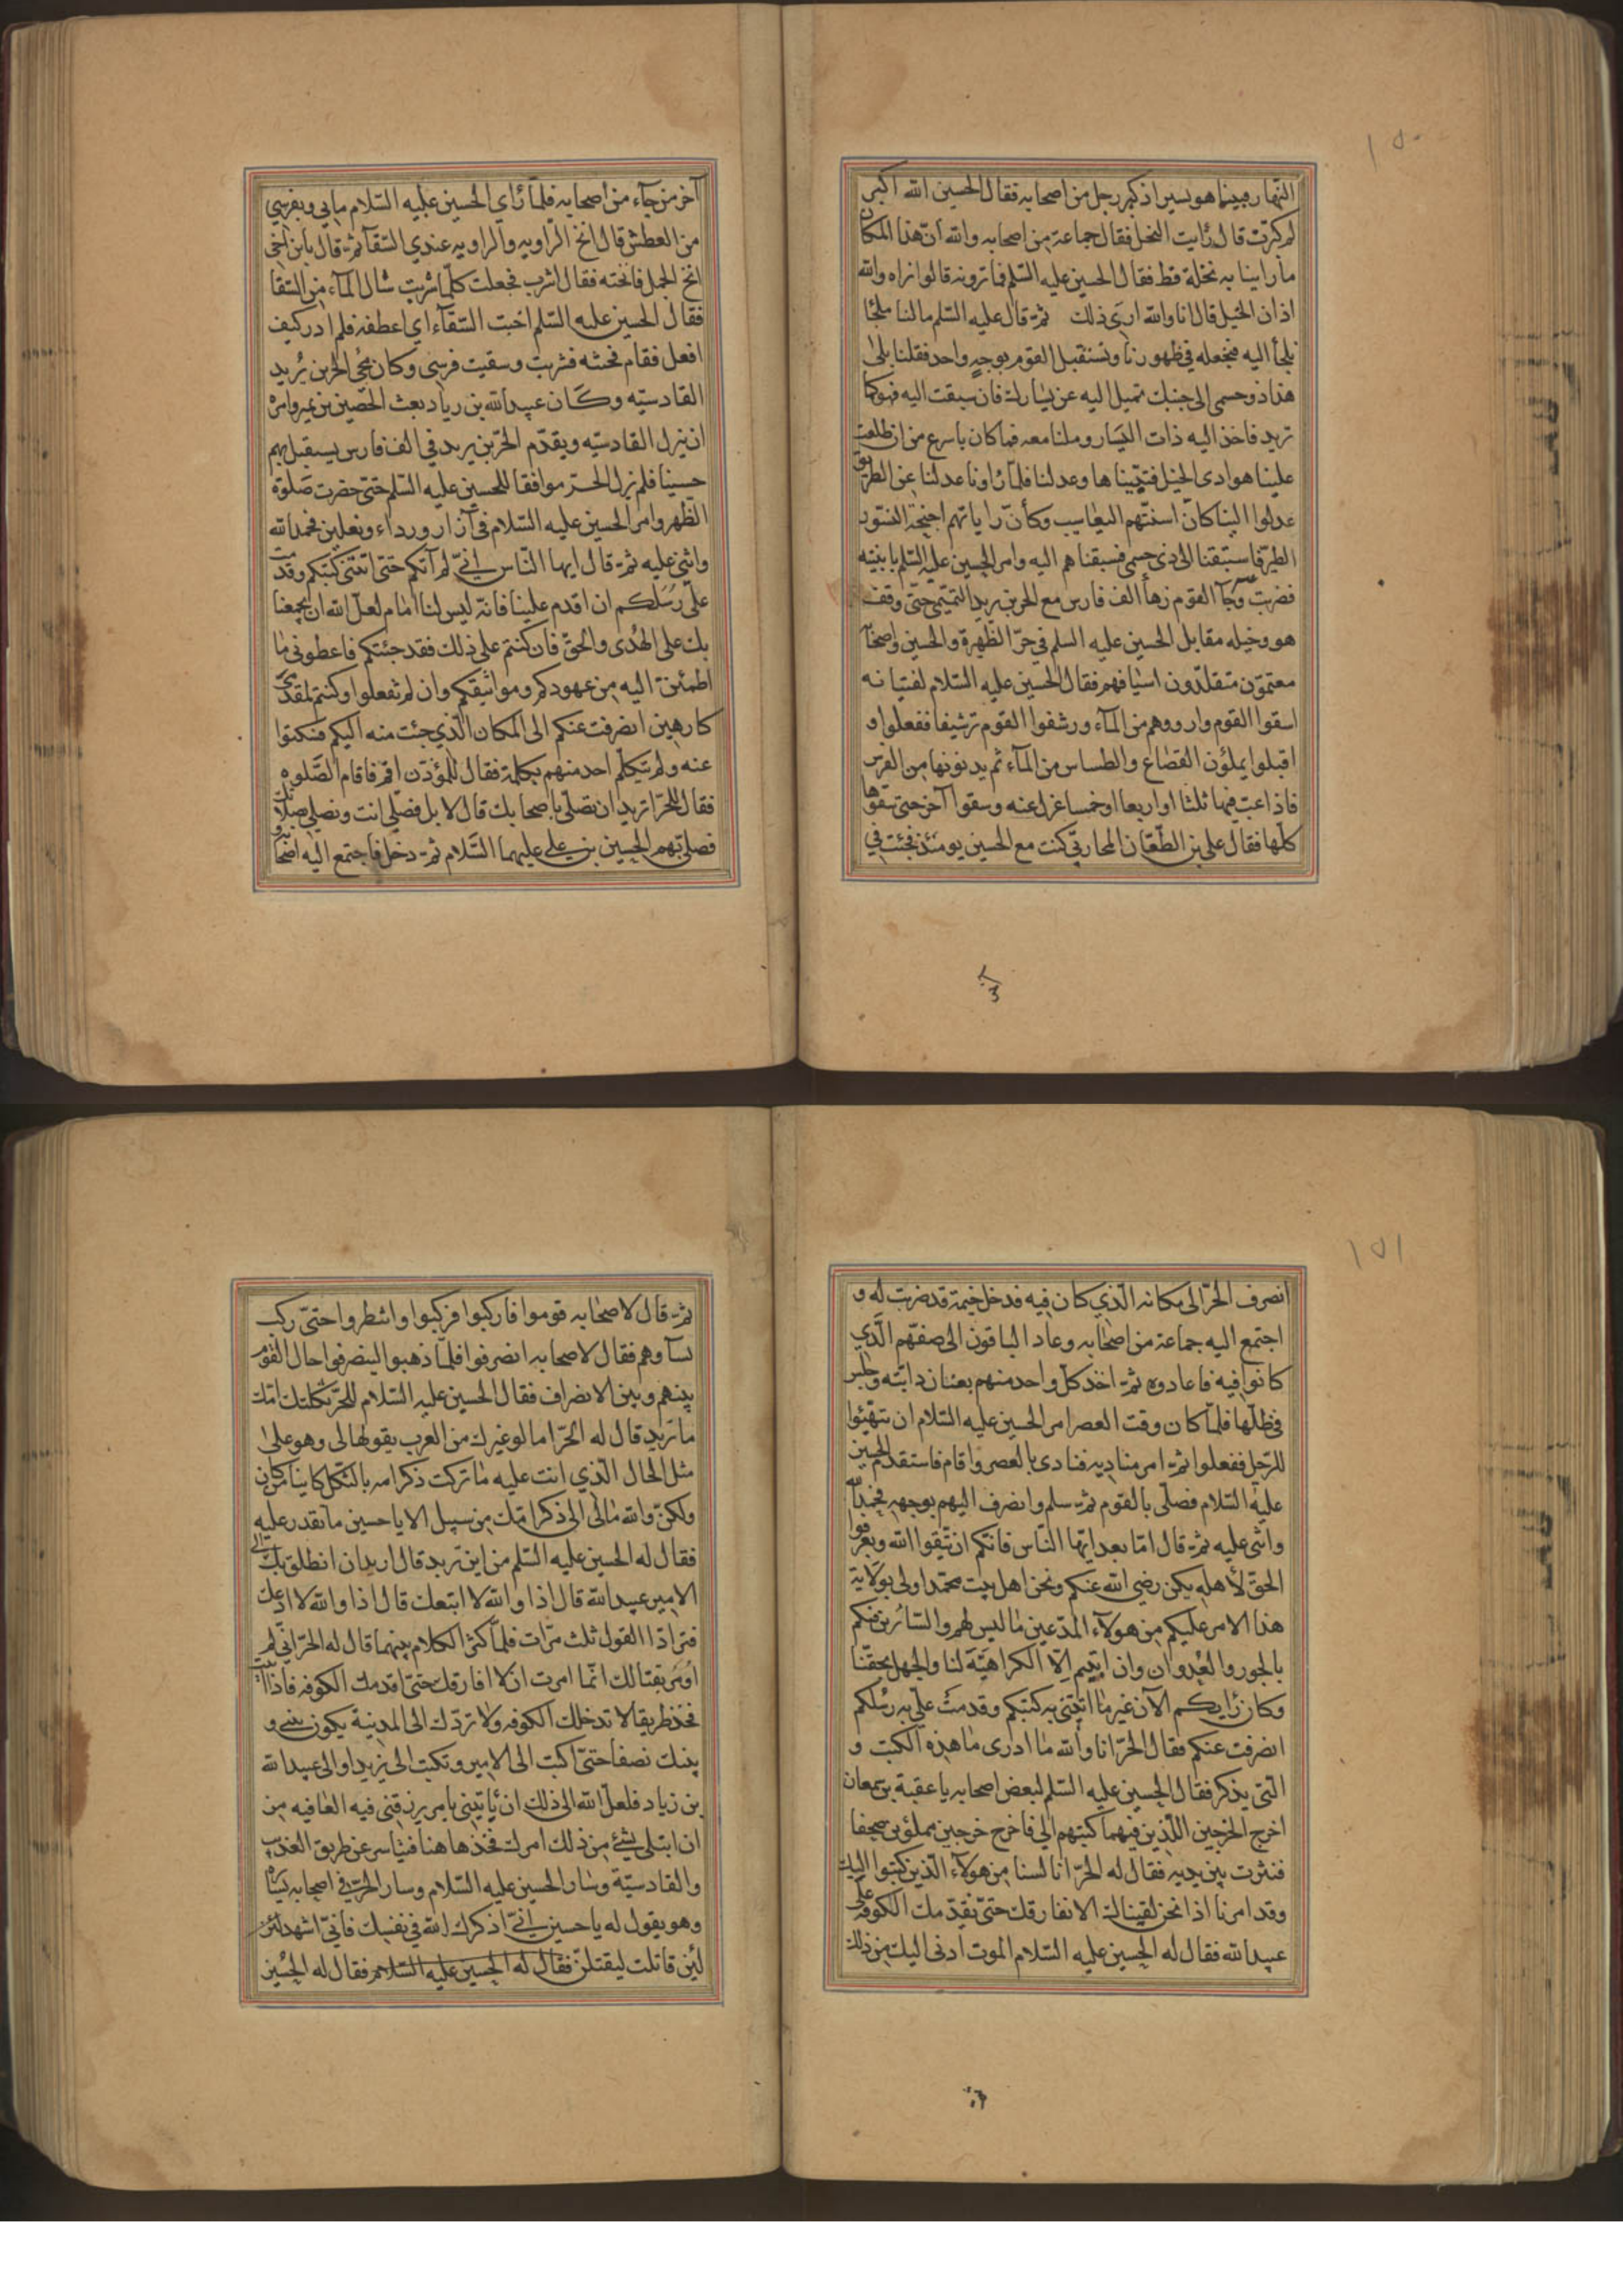 ١٥٠
النّهار فبينما هو يسير اذ كبّر رجل من اصحابه فقال الحسين الله اكبر
لم كبّرت قال رأيت النخل فقال جماعة من اصحابه والله انّ هذا المكان
ما راينا به نخلة قط فقال الحسين عليه السّلم فما ترونه قالوا نراه والله
اذان الخيل قال انا والله ارى ذلك ثمّ قال عليه السّلم ما لنا ملجأ
نلجأ اليه فنجعله في ظهورنا ونستقبل القوم بوجه واحد فقلنا بلى
هذا ذو حسمى الى جنبك تميل اليه عن يسارك فان سبقت اليه فهو كما
تريد فاخذ اليه ذات اليسار وملنا معه فما كان باسرع من ان طلعت
علينا هوادى الخيل فتبيّناها وعدلنا فلمّا رأونا عدلنا عن الطريق
عدلوا الينا كانّ اسنّتهم اليعاسيب وكأنّ راياتهم اجنحة النسور
الطير فاستبقنا الى ذى حسمى فسبقناهم اليه وامر الحسين عليه السّلم بابنيته
فضربت وجآء القوم زهأ الف فارس مع الحر بن يزيد التميمى حتى وقف
هو وخيله مقابل الحسين عليه السلم في حرّ الظهيرة والحسين واصحابه
معتمّون متقلّدون اسيافهم فقال الحسين عليه السّلام لفتيانه
اسقوا القوم وارووهم من المآء ورشفوا القوم ترشيفا ففعلوا و
اقبلوا يملؤن القصاع والطساس من المآء ثم يدنونها من الفرس
فاذا عبّ فيها ثلثا او اربعا او خمسا عزل عنه وسقوا آخر حتى سقوها
كلّها فقال على بن الطّعّان المحاربّي كنت مع الحسين يومئذ فجئت في
آخر من جآء من اصحابه فلمّا رأى الحسين عليه السّلام ما بي وبفرسي
من العطش قال انخ الراويه والراويه عندي السّقآ ثمّ قال يابن اخى
انخ الجمل فانخته فقال اشرب فجعلت كلّما شربت سال المآء من السّقا
فقال الحسين عليه السّلم اخبت السّقآء اى اعطفه فلم ادر كيف
افعل فقام فخنثه فشربت وسقيت فرسى وكان مجئ الحر بن يزيد
القادسيّه وكان عبيدالله بن زياد بعث الحصين بن نمير وامره
ان ينزل القادسيّه ويقدّم الحرّ بن يزيد في الف فارس يستقبل بهم
حسينا فلم يزل الحرّ موافقا للحسين عليه السّلم حتى حضرت صلوة
الظّهر وامر الحسين عليه السّلام في آزار ورداء ونعلين فحمدالله
واثنى عليه ثمّ قال ايها النّاس انّي لم آتكم حتى اتتنى كتبكم وقدمت
علىّ رسلكم ان اقدم علينا فانّه ليس لنا امام لعلّ الله ان يجمعنا
بك على الهدى والحق فان كنتم على ذلك فقد جئتكم فاعطوني ما
اطمئنّ اليه من عهودكم ومواثيقكم وان لم تفعلوا وكنتم لمقدمى
كارهين انصرفت عنكم الى المكان الّذي جئت منه اليكم فسكتوا
عنه ولم يتكلّم احد منهم بكلمة فقال للمؤذّن اقم فاقام الصّلوه
فقال للحرّ اتريد ان تصلّى باصحابك قال لا بل تصلّى انت ونصلى بصلاتك
فصلّى بهم الحسين بن على عليهما السّلام ثمّ دخل فاجتمع اليه اصحابه و
١٥١
انصرف الحرّ الى مكانه الّذي كان فيه فدخل خيمة قد ضربت له و
اجتمع اليه جماعة من اصحابه وعاد الباقون الى صفّهم الّذي
كانوا فيه فاعادوه ثمّ اخذ كلّ واحد منهم بعنان دابّته وجلس
في ظلّها فلمّا كان وقت العصر امر الحسين عليه السّلام ان يتهيّئوا
للرّحل ففعلوا ثمّ امر مناديه فنادى بالعصر واقام فاستقدم الحسين
عليه السّلام فصلّى بالقوم ثمّ سلم وانصرف اليهم بوجهه فحمدالله
واثنى عليه ثمّ قال امّا بعد ايّها النّاس فانّكم ان تتّقوا الله وتعرفوا
الحق لأهله يكن رضي الله عنكم ونحن اهل بيت محمّد اولى بولاية
هذا الامر عليكم من هولآء المدّعين ما ليس لهم والسّائرين فيكم
بالجور والعدوان وان ابيتم الّا الكراهيّة لنا والجهل بحقّنا
وكان رأيكم الآن غير ما اتتنى به كتبكم وقدمت علىّ به رسلكم
انصرفت عنكم فقال الحرّ انا والله ما ادرى ما هذه الكتب و
الّتى يذكر فقال الحسين عليه السّلم لبعض اصحابه يا عقبة بن سمعان
اخرج الخرجين اللّذين فيهما كتبهم الىّ فاخرج خرجين مملؤين صحفا
فنثرت بين يديه فقال له الحرّ انا لسنا من هولآء الّذين كتبوا اليك
وقد امرنا اذا نحن لقيناك الا نفارقك حتى نقدّمك الكوفه على
عبيدالله فقال له الحسين عليه السّلام الموت ادنى اليك من ذلك
ثمّ قال لاصحابه قوموا فاركبوا فركبوا وانتظروا حتى ركب
نساؤهم فقال لاصحابه انصرفوا فلمّا ذهبوا لينصرفوا حال القوم
بينهم وبين الانصراف فقال الحسين عليه السّلام للحرّ ثكلتك امّك
ما تريد قال له الحرّ اما لو غيرك من العرب يقولها لى وهو على
مثل الحال الّذي انت عليه ما تركت ذكر امه بالثكل كاينا من كان
ولكن والله مالى الى ذكر امّك من سبيل الا يا حسين ما نقدر عليه
فقال له الحسين عليه السّلم من اين تريد قال اريد ان انطلق بك الى
الامير عبيدالله قال اذا والله لا اتبعك قال اذا والله لا ادعك
فترادّا القول ثلث مرّات فلمّا كثر الكلام بينهما قال له الحرّ انّي لم
اومر بقتالك انّما امرت ان لا افارقك حتى اقدمك الكوفه فاذا ابيت
فخذ طريقا لا تدخلك الكوفه ولا تردّك الى المدينة يكون بيني و
بينك نصفا حتى اكتب الى الامير وتكتب الى يزيد او الى عبيدالله
بن زياد فلعلّ الله الى ذلك ان يأتيني بامر يرزقنى فيه العافيه من
ان ابتلى بشئ من ذلك امرك فخذ هاهنا فتياسر عن طريق العذيب
والقادسيّة وسار الحسين عليه السّلام وسار الحرّ في اصحابه يسايره
وهو يقول له يا حسين انّي اذكرك الله في نفسك فانّي اشهد لئن
لئن قاتلت ليقتلنّ فقال له الحسين عليه السلام فقال له الحسين